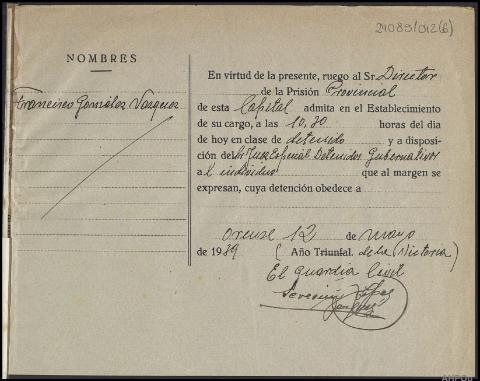 24089/012(6)
NOMBRES
Francisco González Vazquez
En virtud de la presente, ruego al Sr. Director
de la Prisión Provincial
de esta Capital admita en el Establecimiento
de su cargo, a las 10,30 horas del día
de hoy en clase de detenido y a disposi-
ción del Sr Juez Especial Detenidos Gubernativos
a l individuo que al margen se
expresan, cuya detención obedece a
Orense 12 de mayo
de 1939 ( Año Triunfal. de la Victoria)
El Guardia Civil
López